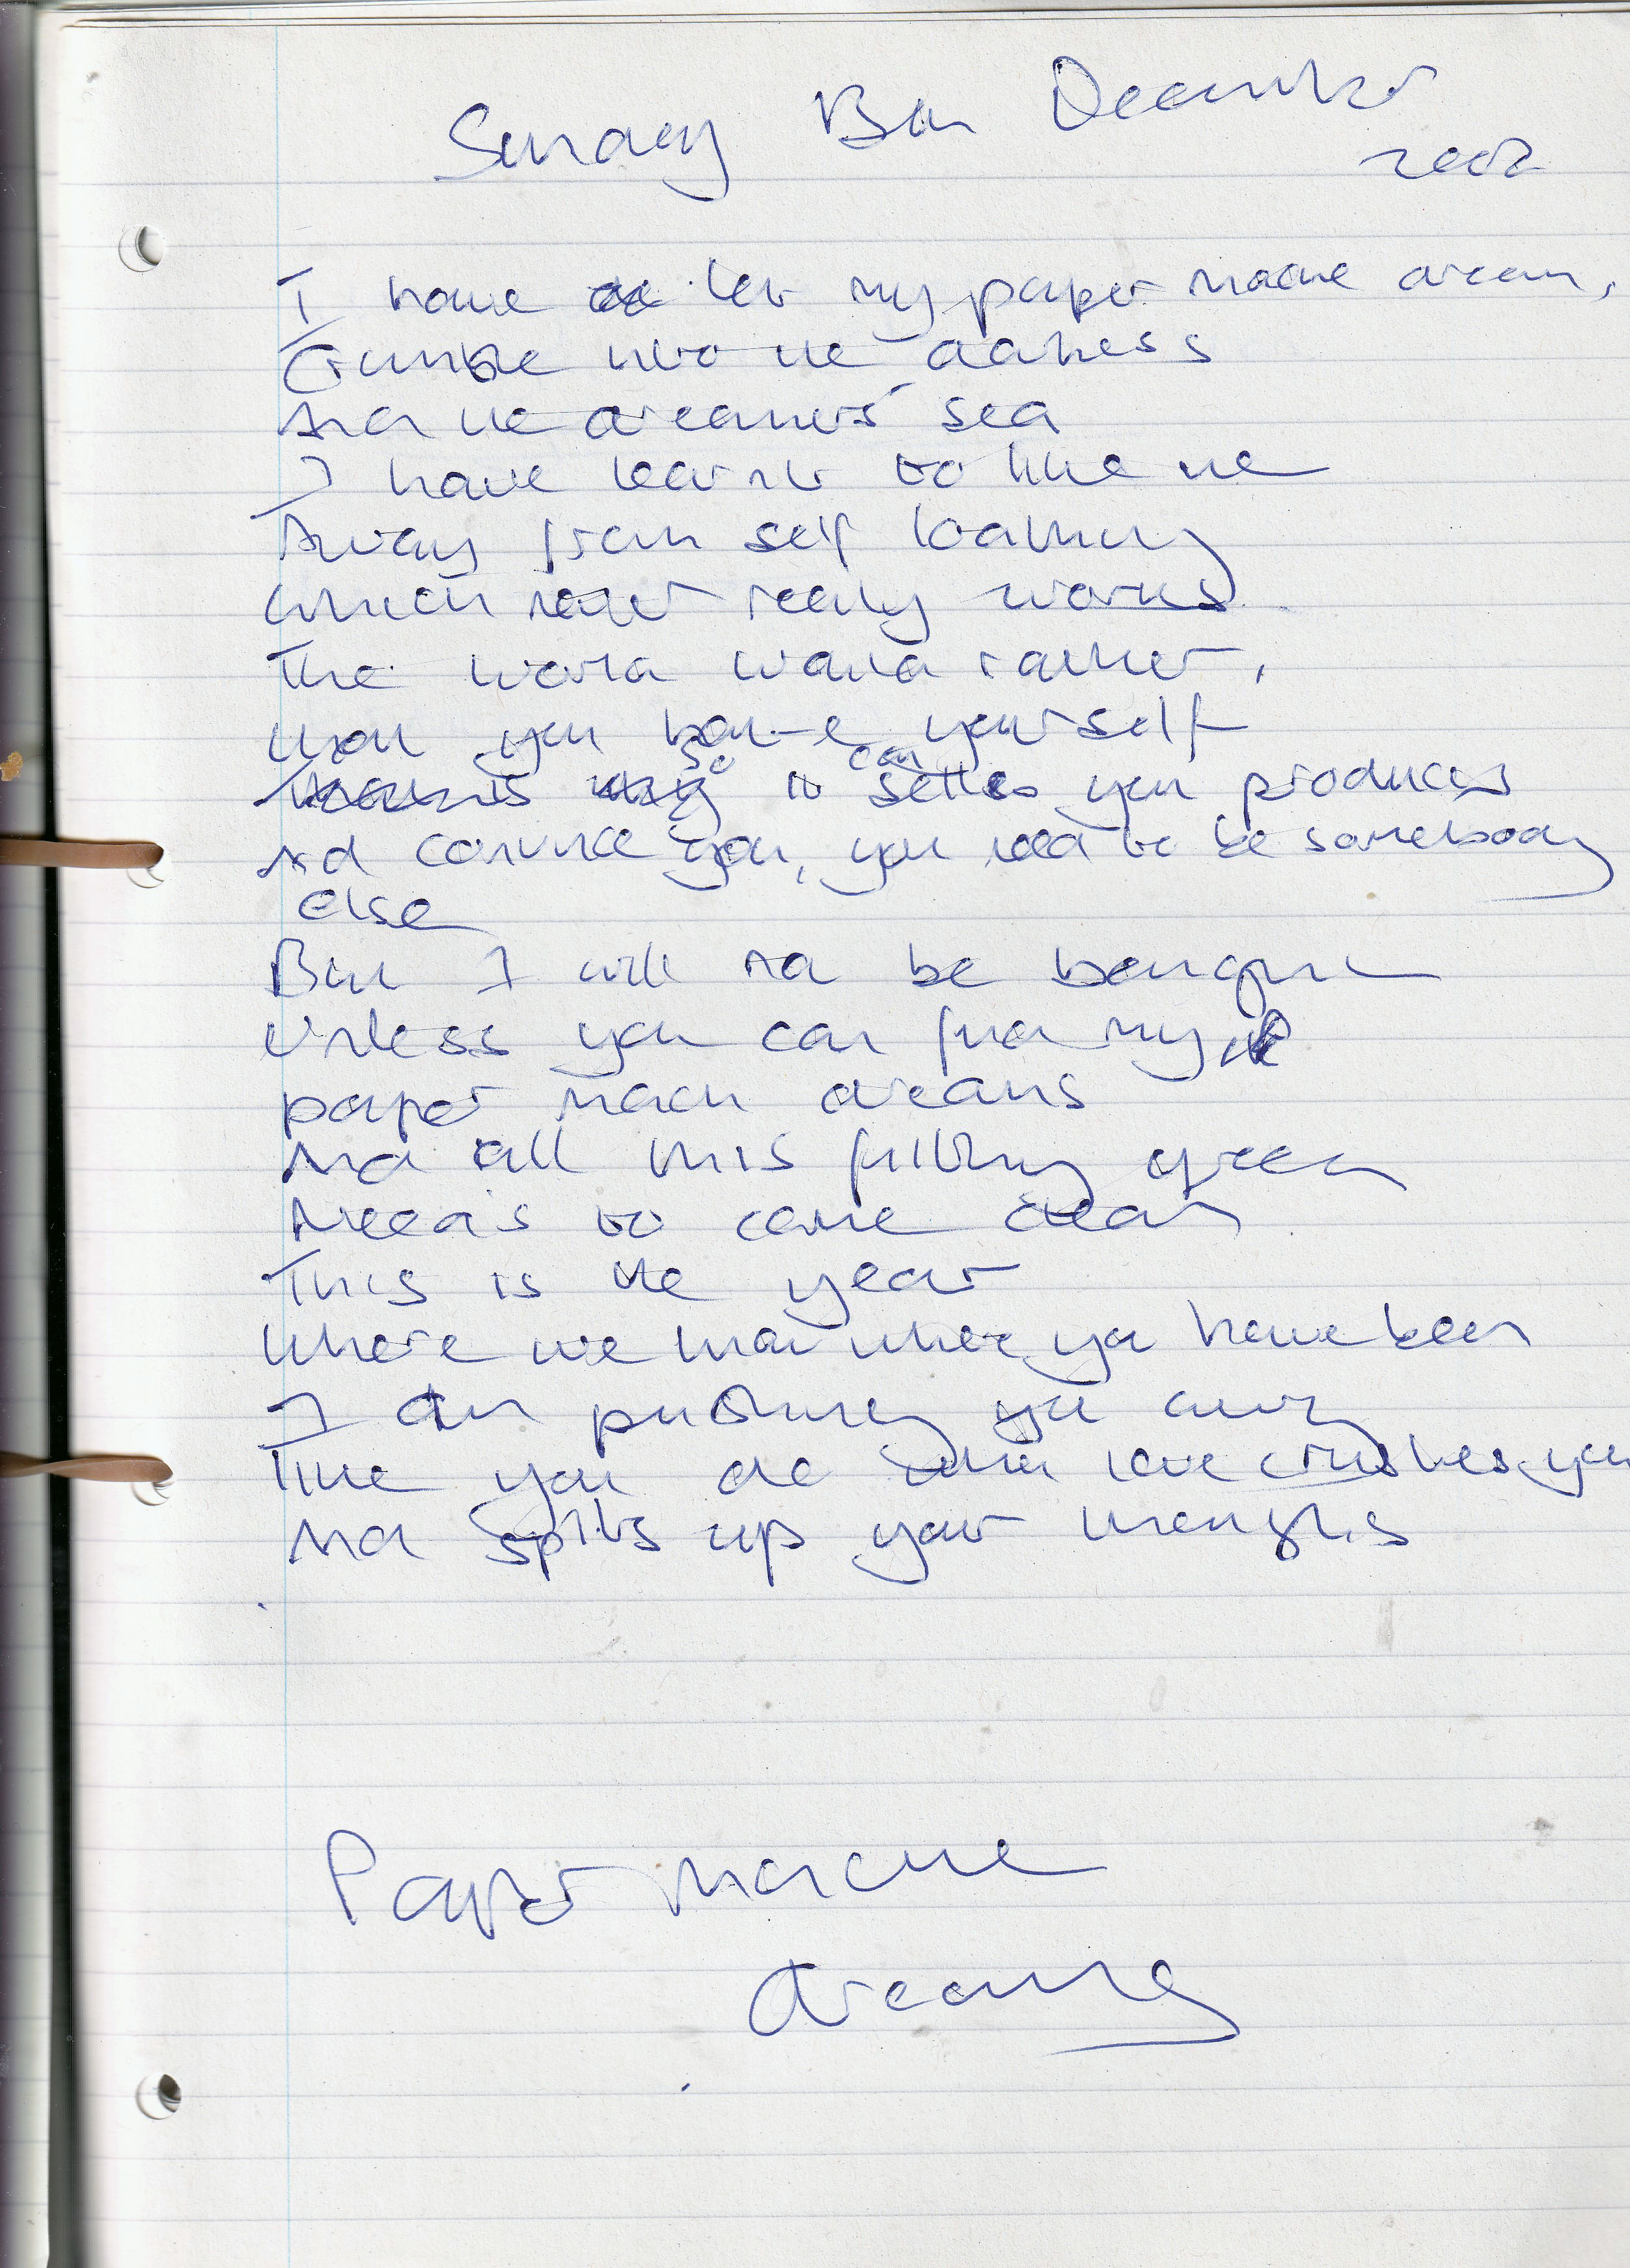 Sunday 8th December
2002
I have let my paper mache dream,
Crumble into the darkness
And the dreamers' sea
I have learnt to like me
Away from self loathing
Which never really works
The world would rather,
that you hate yourself
So it can sell you products
And convince you, you need to be somebody
else
But I will not be bought
Unless you can find my
paper mach dreams
And all this filthy green
Needs to come clean
This is the year
Where we know where you have been
I am pushing you away
Like you do when love crushes you
And splits up your thoughts
Paper mache
dreams